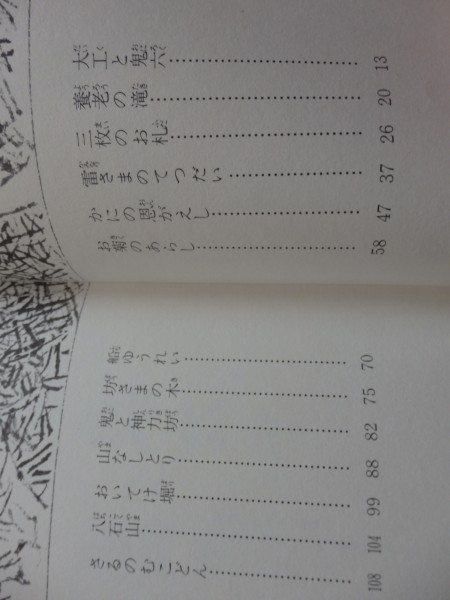 大工と鬼六……………13
養老の滝……………20
三枚のお札……………26
雷さまのてつだい……………37
かにの恩がえし……………47
お菊のあらし……………58
船ゆうれい……………70
坊さまの木……………75
鬼と神力坊……………82
山なしとり……………88
おいてけ堀……………99
八石山……………104
さるのむこどん……………108